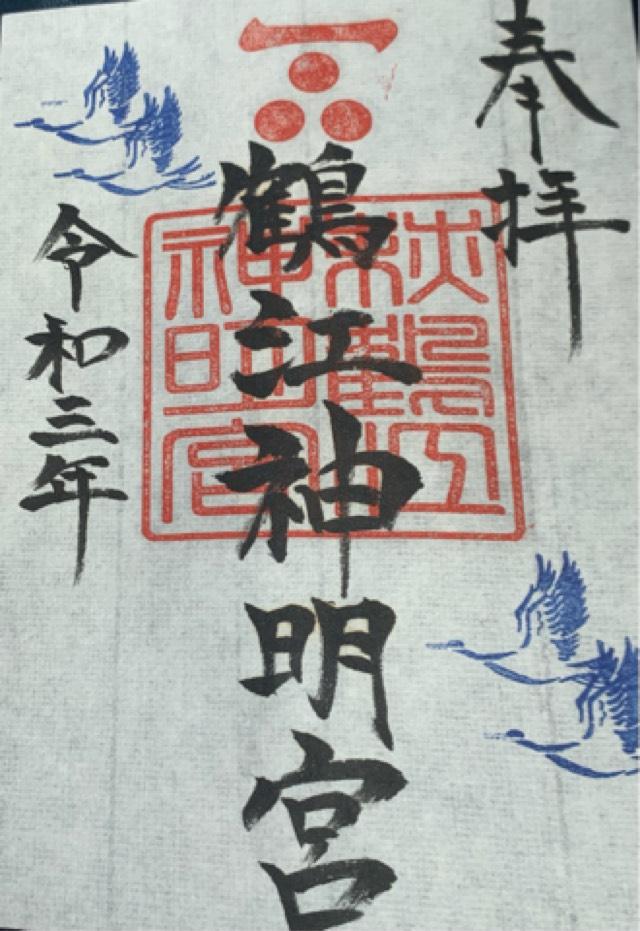 奉拝
鶴江神明宮
令和三年
萩鶴江神明宮